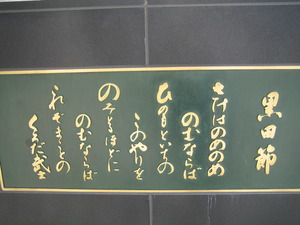 黒田節
さけはのめのめ
のむならば
ひのもといちの
このやりを
のみとるほどに
のむならば
これぞまことの
くろだ武士